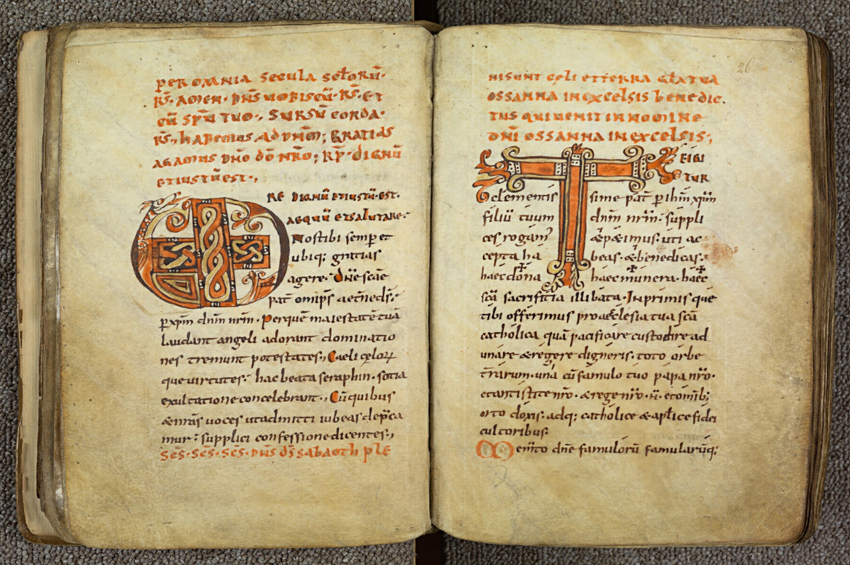 per omnia secula sctorū·
R̄s· amen· Dn̄s uobiscū· R̄s· et
cū spū tuo· Sursū corda·
R̄s· habemus ad dn̄m; Gratias
agamus dn̄o dō nr̄o; R̄p· dignū
et iustū est·,
RE dignū et iustū est·
aequū et salutare·
Nos tibi semper et
ubiq; gratias
agere· dn̄e sc̄e
pat̄ omip̄s aet̄ne ds̄·
p xp̄m dn̄m nr̄m· Per quem maiestatē tuā
laudant angeli adorant dominatio
nes tremunt potestates·, Caeli celorꝝ
que uirtutes· hac beata seraphin· sotia
exultatione concelebrant·, Cū quibus
& nr̄as uoces ut admitti iubeas dep̄ca
mur· supplici confessione dicentes·,
Sc̄s· sc̄s· sc̄s· dn̄s ds̄ sabaoth ple
26
ni sunt celi et terra gl̄a tua
ossanna in excelsis benedic·
tus qui uenit in nomine
dn̄i ossanna in excelsis;
TE IGI
TUR
clementis sime pat̄ p ih̄m xp̄m
filiū tuum dn̄m nr̄m· suppli
ces rogam' & petimus· uti ac
cepta ha beas· & benedicas·
haec dona haec munera· haec
sc̄a sacrificia illibata· In primis que
tibi offerimus pro aecclesia tua sc̄a
catholica quā pacificare custodire ad
unare & regere digneris· toto orbe
terrarum· una cū famulo tuo papa nr̄o·
et antistite nr̄o· & rege nr̄o· N̄· et omib;
orto doxis· adq; catholice & aplice fidei
cultoribus·
Memto dn̄e famulorū famularūq;